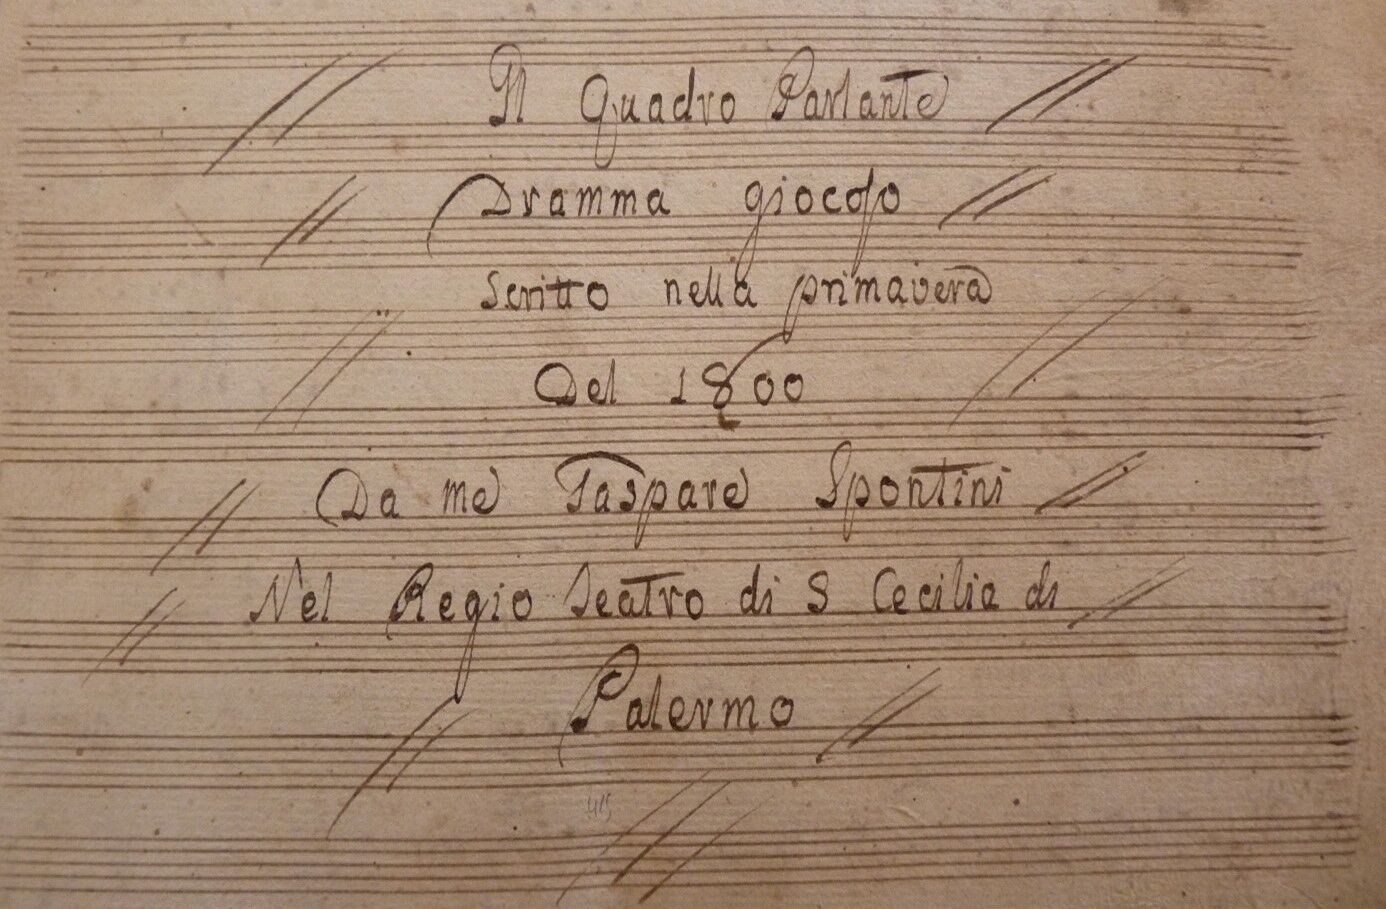 Il Quadro Parlante
Dramma giocoſo
Scritto nella primavera
Del 1800
Da me Gaspare Spontini
Nel Regio Teatro di S Cecilia di
Palermo